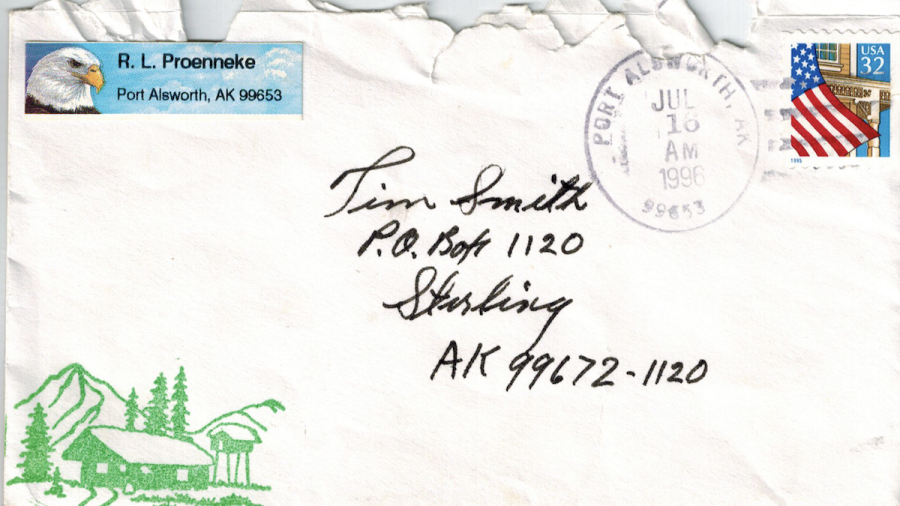 R. L. Proenneke
Port Alsworth, AK 99653
PORT ALSWORTH, AK
JUL
16
AM
1996
99653
USA
32
1995
Tim Smith
P.O. Box 1120
Sterling
AK 99672-1120